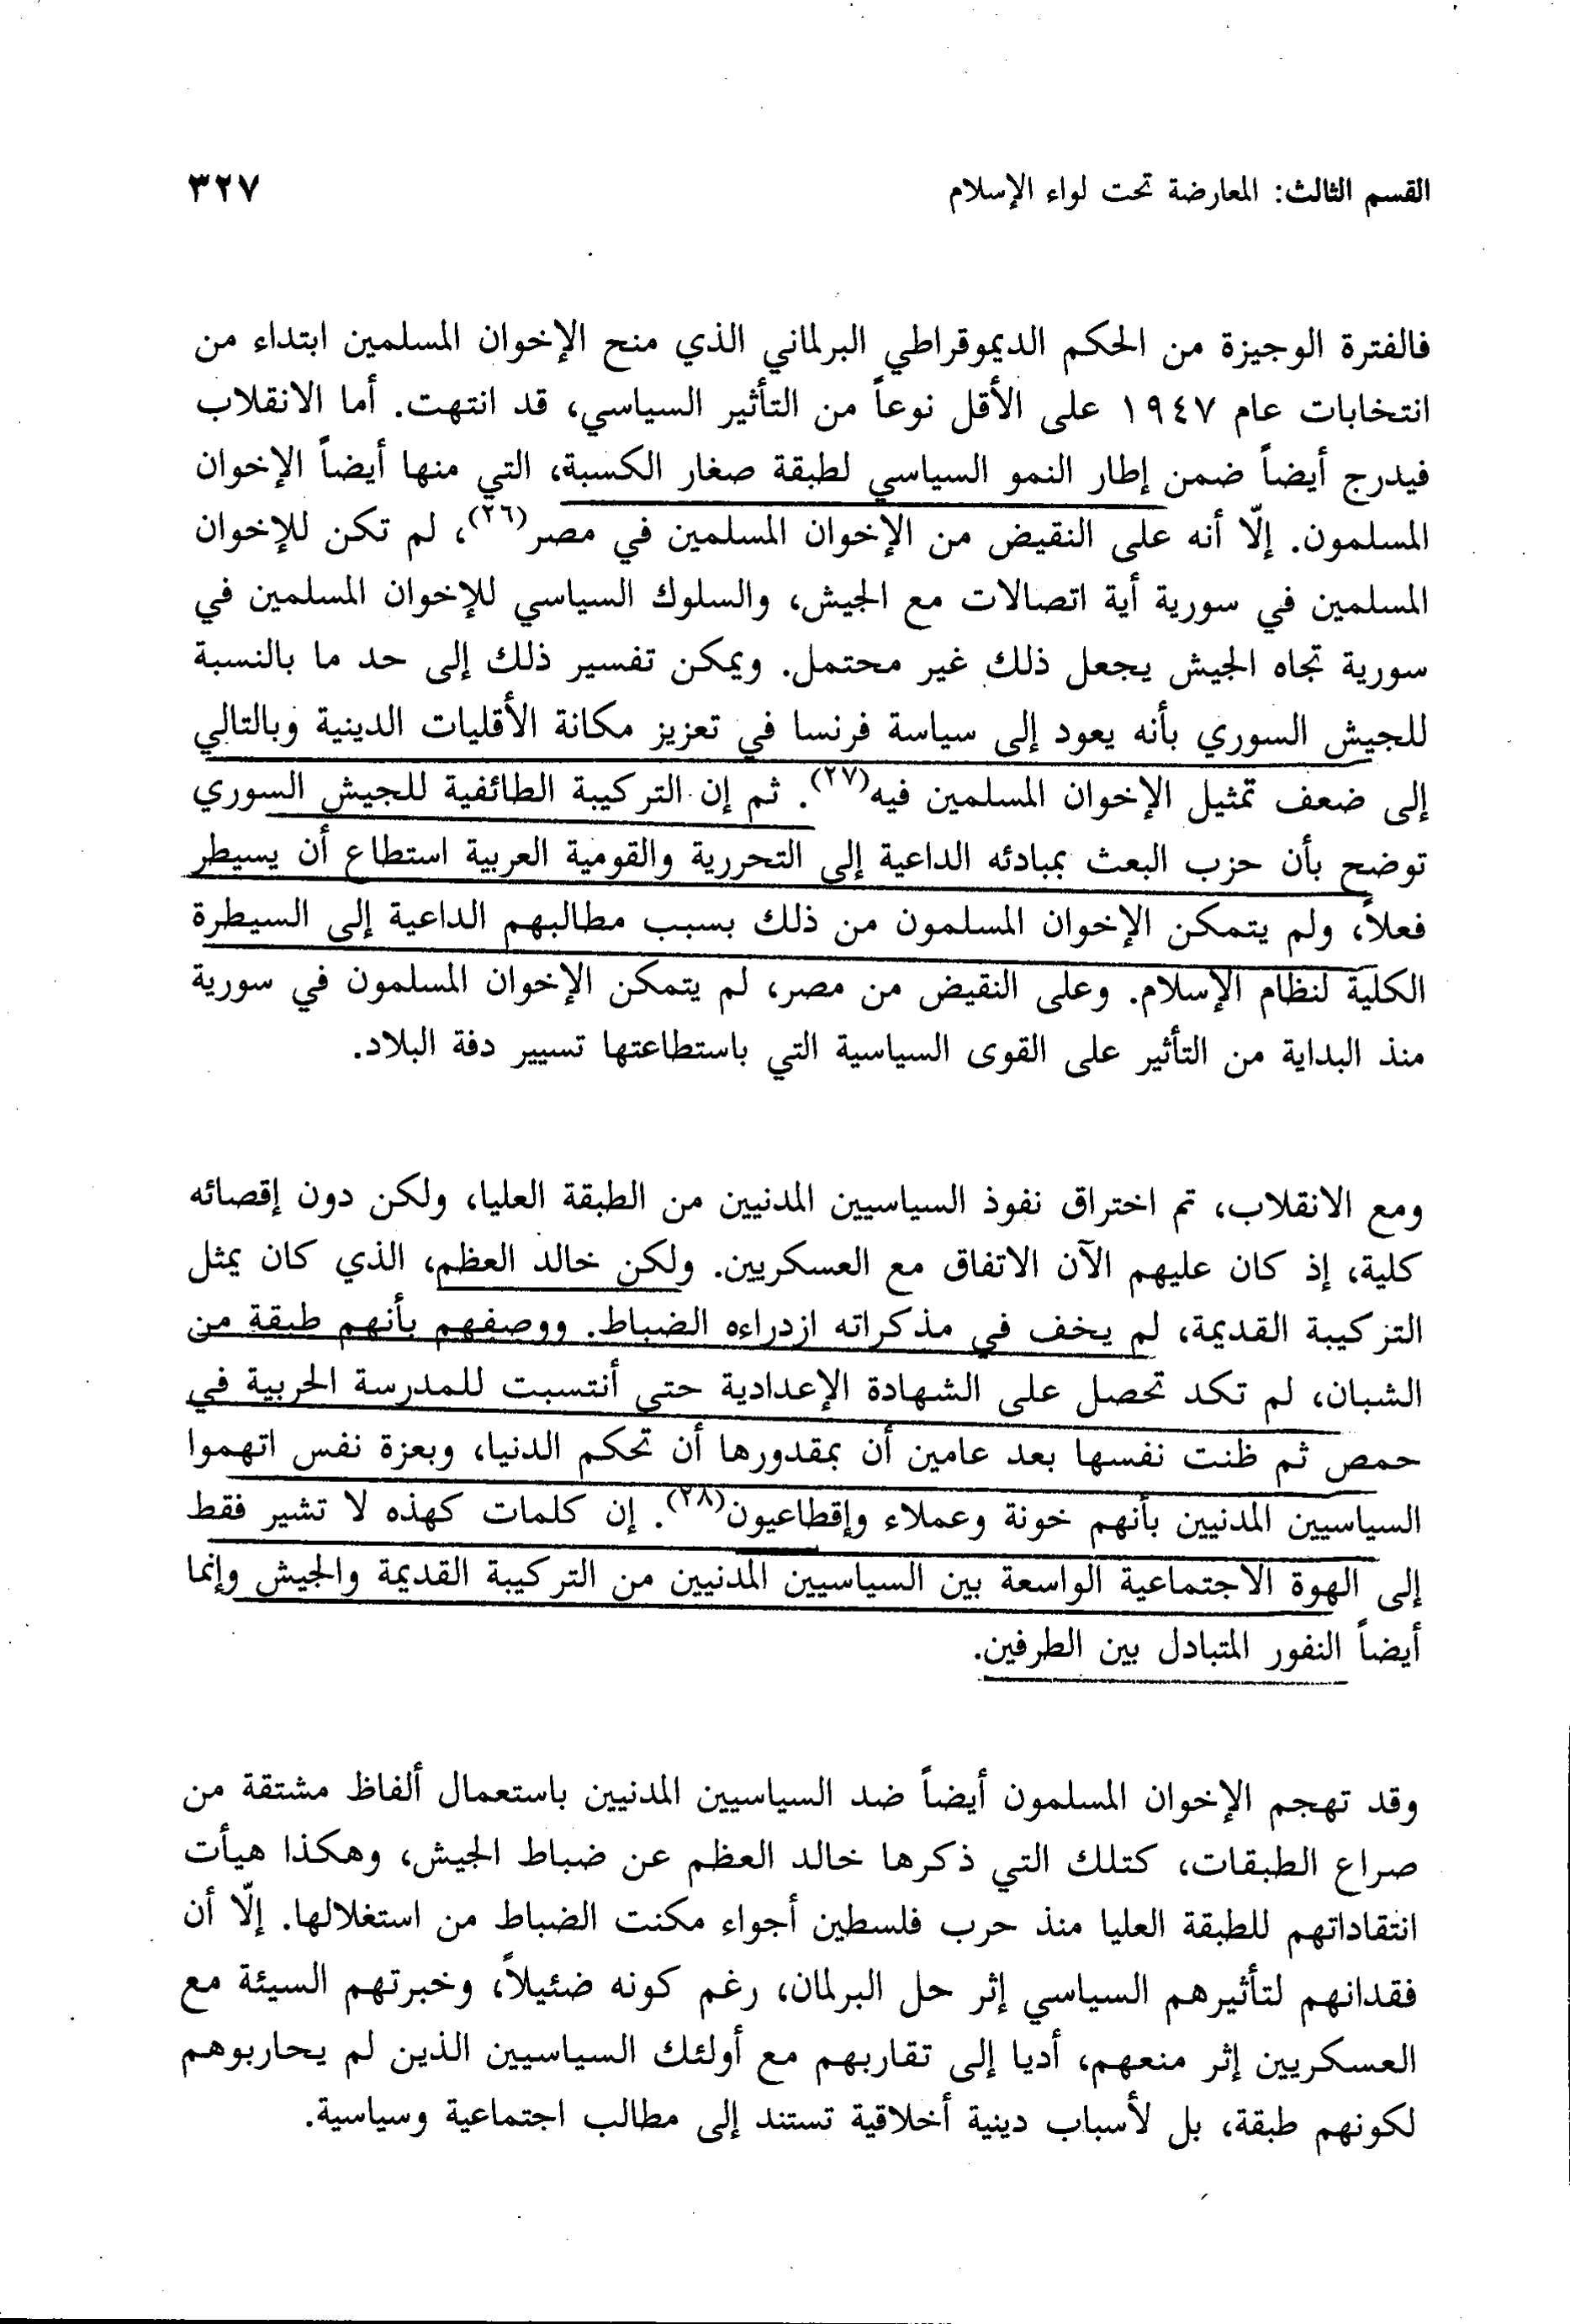 القسم الثالث: المعارضة تحت لواء الإسلام ٣٢٧
فالفترة الوجيزة من الحكم الديموقراطي البرلماني الذي منح الإخوان المسلمين ابتداء من
انتخابات عام ١٩٤٧ على الأقل نوعاً من التأثير السياسي، قد انتهت. أما الانقلاب
فيدرج أيضاً ضمن إطار النمو السياسي لطبقة صغار الكسبة، التي منها أيضاً الإخوان
المسلمون. إلّا أنه على النقيض من الإخوان المسلمين في مصر(٢٦)، لم تكن للإخوان
المسلمين في سورية أية اتصالات مع الجيش، والسلوك السياسي للإخوان المسلمين في
سورية تجاه الجيش يجعل ذلك غير محتمل. ويمكن تفسير ذلك إلى حد ما بالنسبة
للجيش السوري بأنه يعود إلى سياسة فرنسا في تعزيز مكانة الأقليات الدينية وبالتالي
إلى ضعف تمثيل الإخوان المسلمين فيه(٢٧). ثم إن التركيبة الطائفية للجيش السوري
توضح بأن حزب البعث بمبادئه الداعية إلى التحررية والقومية العربية استطاع أن يسيطر
فعلاً، ولم يتمكن الإخوان المسلمون من ذلك بسبب مطالبهم الداعية إلى السيطرة
الكلية لنظام الإسلام. وعلى النقيض من مصر، لم يتمكن الإخوان المسلمون في سورية
منذ البداية من التأثير على القوى السياسية التي باستطاعتها تسيير دفة البلاد.
ومع الانقلاب، تم اختراق نفوذ السياسيين المدنيين من الطبقة العليا، ولكن دون إقصائه
كلية، إذ كان عليهم الآن الاتفاق مع العسكريين. ولكن خالد العظم، الذي كان يمثل
التركيبة القديمة، لم يخف في مذكراته ازدراءه الضباط. ووصفهم بأنهم طبقة من
الشبان، لم تكد تحصل على الشهادة الإعدادية حتى أنتسبت للمدرسة الحربية في
حمص ثم ظنت نفسها بعد عامين أن بمقدورها أن تحكم الدنيا، وبعزة نفس اتهموا
السياسيين المدنيين بأنهم خونة وعملاء وإقطاعيون(٢٨). إن كلمات كهذه لا تشير فقط
إلى الهوة الاجتماعية الواسعة بين السياسيين المدنيين من التركيبة القديمة والجيش وإنما
أيضاً النفور المتبادل بين الطرفين.
وقد تهجم الإخوان المسلمون أيضاً ضد السياسيين المدنيين باستعمال ألفاظ مشتقة من
صراع الطبقات، كتلك التي ذكرها خالد العظم عن ضباط الجيش، وهكذا هيأت
انتقاداتهم للطبقة العليا منذ حرب فلسطين أجواء مكنت الضباط من استغلالها. إلّا أن
فقدانهم لتأثيرهم السياسي إثر حل البرلمان، رغم كونه ضئيلاً، وخبرتهم السيئة مع
العسكريين إثر منعهم، أديا إلى تقاربهم مع أولئك السياسيين الذين لم يحاربوهم
لكونهم طبقة، بل لأسباب دينية أخلاقية تستند إلى مطالب اجتماعية وسياسية.